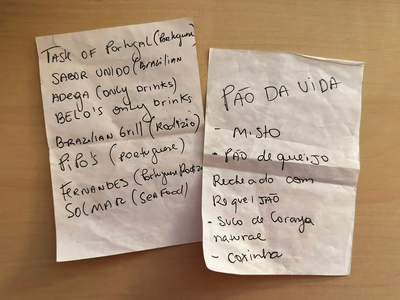 TASK OF Portugal (Portuguese)
SABOR UNIDO (Brazilian
ADEGA (only drinks)
BELO'S only drinks
BRAZILIAN Grill (Rodizio)
PIPO'S (Portuguese)
FERNANDES (Portuguese
SOLMAR (SEAFOOD)
PÃO DA VIDA
- MISTO
- PÃO de queijo
Recheado com
Requeijão
- SUCO de laranja
natural
- coxinha